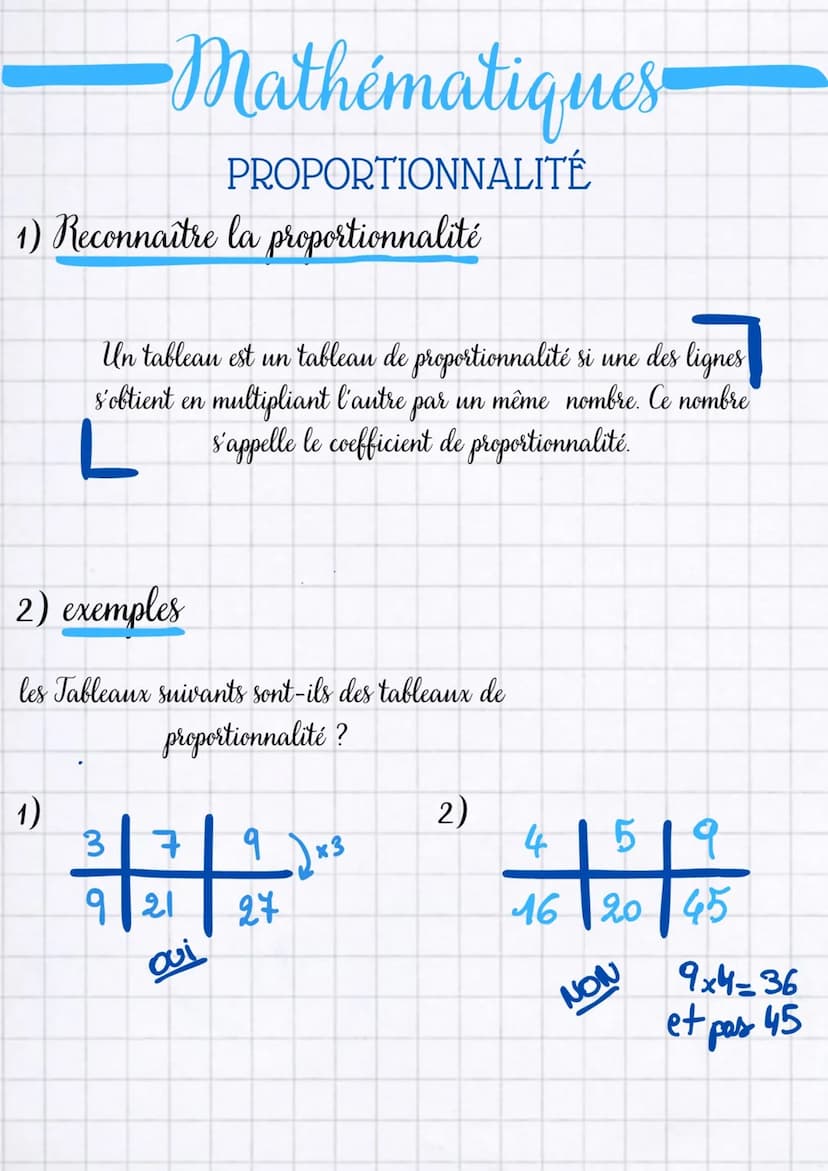 Mathématiques
PROPORTIONNALITÉ
1) Reconnaître la proportionnalité
Un tableau est un tableau de proportionnalité si une des lignes
s'obtient en multipliant l'autre par un même nombre. Ce nombre
s'appelle le coefficient de proportionnalité.
2) exemples
les Tableaux suivants sont-ils des tableaux de
proportionnalité ?
1)
3 7 9 x3
9 21 27
OUi
2)
4 5 9
16 20 45
NON
9x4=36
et pas 45